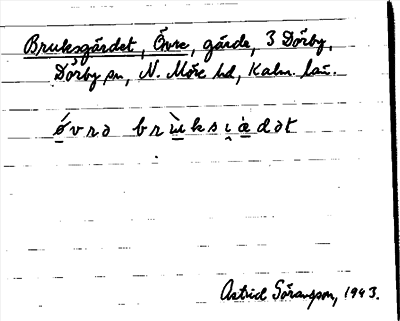 Bruksgärdet, Övre, gärde, 3 Dörby,
Dörby sn, N. Möre hd, Kalm. län.
ǿvrə brùksɩ̯ȧdət
Astrid Göransson, 1943.